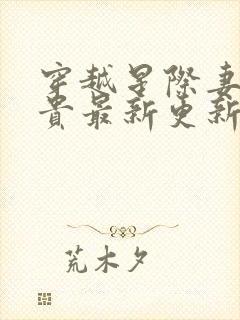 穿越星際妻
貴最新更新
荒木夕